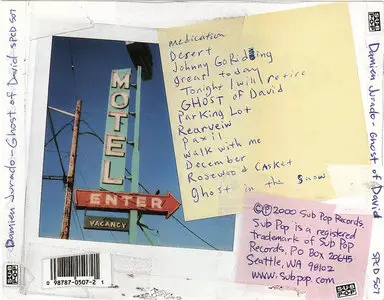 Damien Jurado - Ghost of David - SPCD 507
medication
Desert
Johnny Go Riding
great today
Tonight I will retire
GHOST of David
Parking Lot
Rearveiw
Paxil
walk with me
December
Rosewood Casket
Ghost in the Snow
MOTEL
ENTER
VACANCY
0 98787-0507-2 1
©℗ 2000 Sub Pop Records
Sub Pop is a registered
trademark of Sub Pop
Records, PO Box 20645
Seattle, WA 98102
www.subpop.com
SUB
POP
Damien Jurado - Ghost of David
SPCD 507
SUB
POP